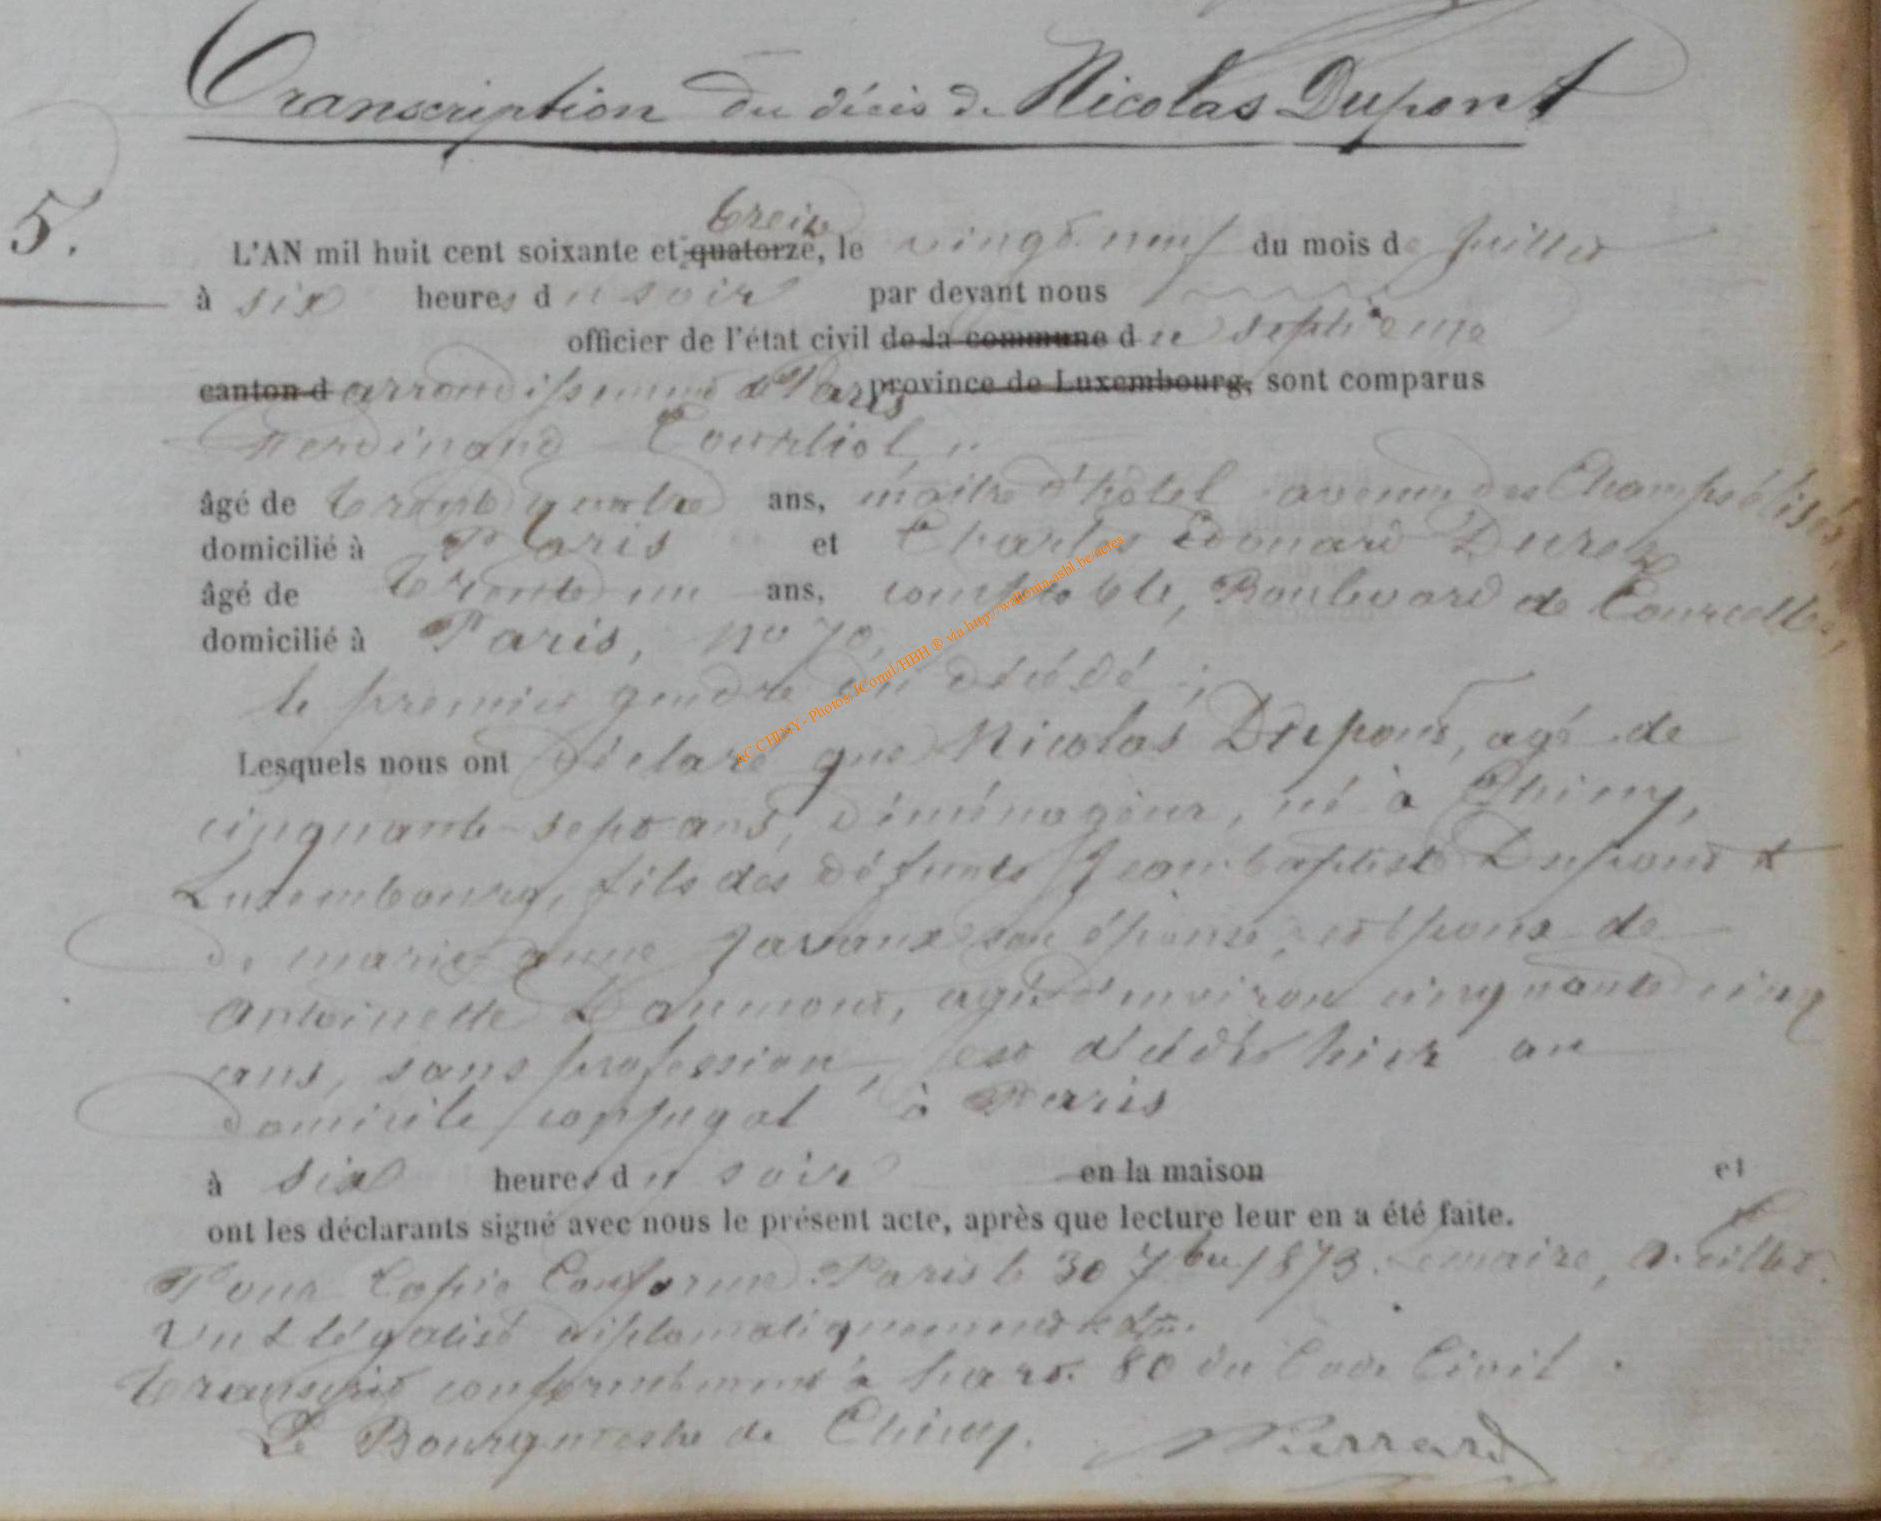 Transcription du décès de Nicolas Dupont
5.
treize
L'AN mil huit cent soixante et quatorze, le vingt neuf du mois de Juillet
à six heures du soir par devant nous
officier de l'état civil de la commune du septième
canton d arrondissement de Paris province de Luxembourg, sont comparus
Ferdinand
âgé de trente quatre ans, maître d'hôtel avenue des Champs élisés,
domicilié à Paris et Charles Edouard
âgé de trente un ans, comptable, Boulevard de Courcelles,
domicilié à Paris, no 70,
le premier gendre du décédé ;
Lesquels nous ont déclaré que Nicolas Dupont, agé de
cinquante-sept ans, déménageur, né à Chiny,
Luxembourg, fils des défunts Jean baptiste Dupont et
de marie anne Javaux son épouse, époux de
Antoinette Daumont, agée d'environ cinquante cinq
ans, sans profession, est décédé hier au
domicile conjugal à Paris
à six heures du soir en la maison et
ont les déclarants signé avec nous le présent acte, après que lecture leur en a été faite.
Pour Copie Conforme Paris le 30 7bre 1873. Lemaire,
Vu & légalisé diplomatiquement
transcrit conformément à l'art. 80 du Code Civil.
Le Bourgmestre de Chiny. Pierrard
AC CHINY - Photos JComil/HBH ® via http://wallonia-asbl.be/actes